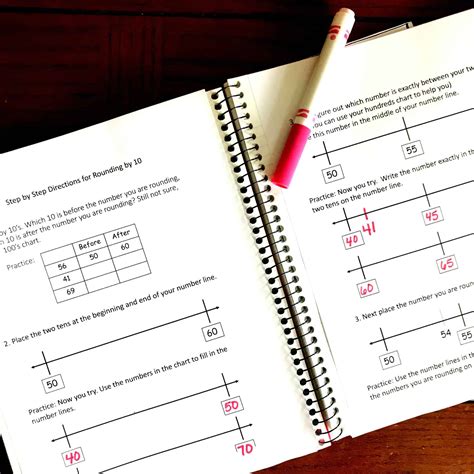 Step by Step Directions for Rounding by 10
by 10's. Which 10 is before the number you are rounding,
10 is after the number you are rounding? Still not sure,
100's chart.
Practice:
Before After
56 50 60
41
69
2. Place the two tens at the beginning and end of your number line.
50 60
Practice: Now you try. Use the numbers in the chart to fill in the
number lines.
40 50
70
3. figure out which number is exactly between your two
you can use your hundreds chart to help you)
this number in the middle of your number line.
50 55
Practice: Now you try. Write the number exactly in the
two tens on the number line.
40 41 45
60 65
3. Next place the number you are round
50 54 55
Practice: Use the number lines in the
the numbers you are rounding on